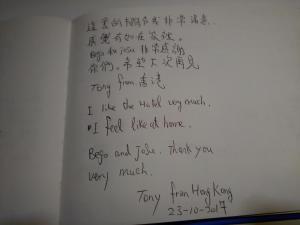 這裏的我非常滿意.
感覺有如在家裡.
Bego 和 Jose 非常感謝
你們。希望下次再見
Tony from 香港
I like the Hotel very much.
I feel like at home.
Bego and Jose. Thank you
very much.
Tony from Hong Kong
23-10-2017